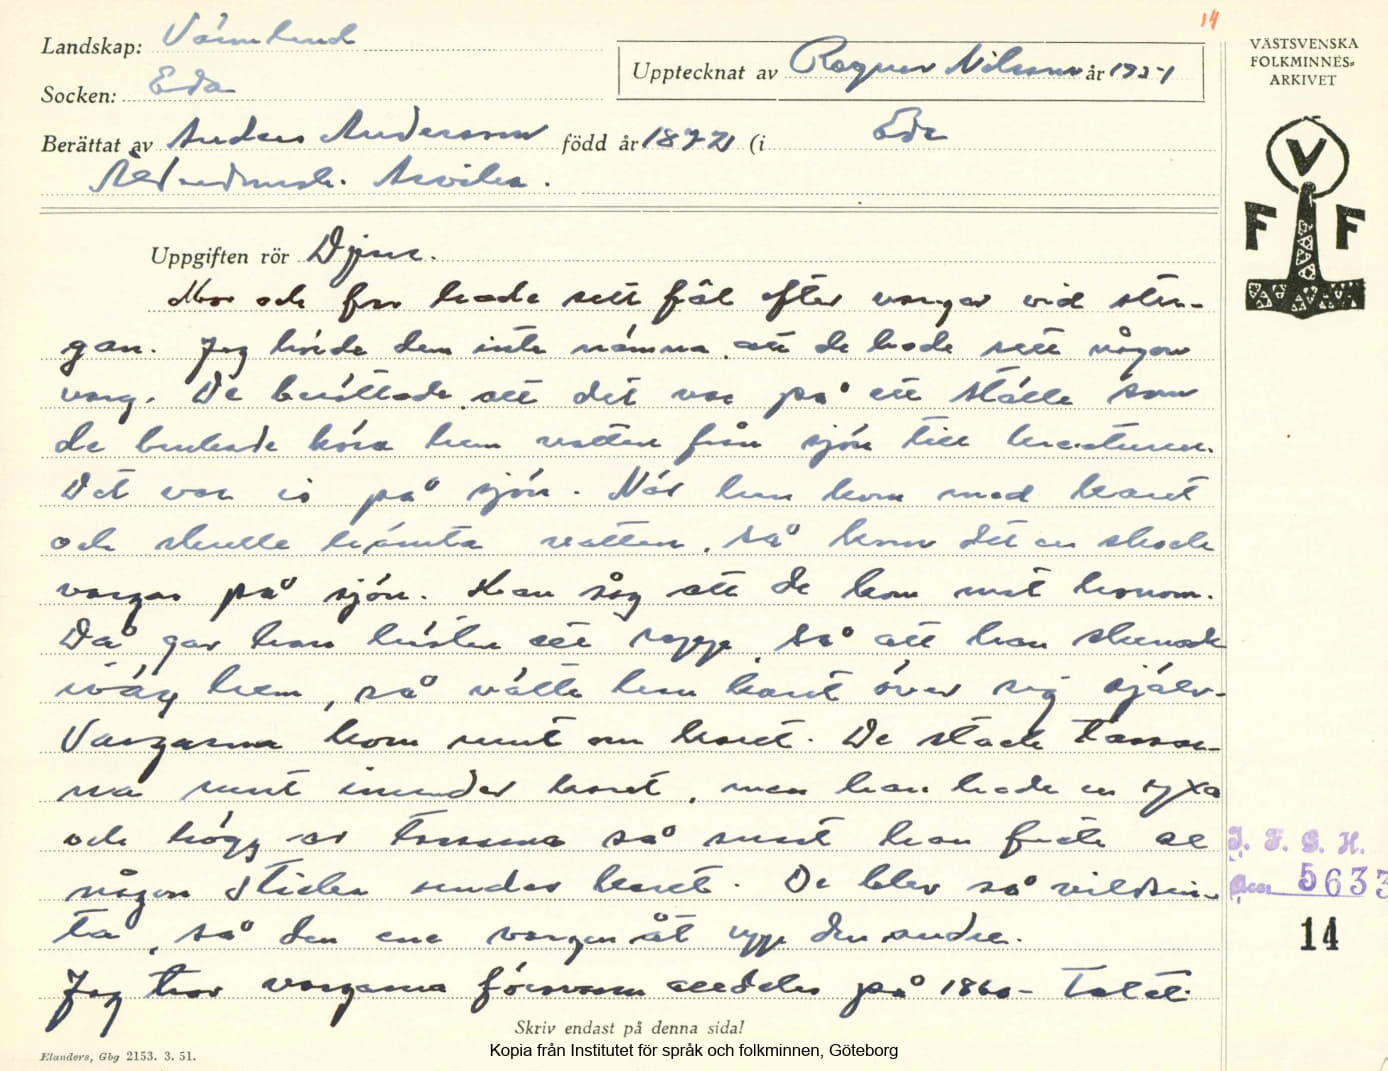 14
Landskap: Värmland
Socken: Eda
Upptecknat av Ragnar Nilsson år 1951
Berättat av Anders Andersson född år 1872 (i Eda
Åvika.
VÄSTSVENSKA
FOLKMINNES-
ARKIVET
V
F F
Uppgiften rör Djur.
Mor och far hade sett spår efter vargar vid stu-
gan. Jag hörde dem inte nämna att de hade sett någon
varg. De berättade att det var på ett ställe som
de brukade köra hem vatten från sjön till kreaturen.
Det var is på sjön. När han kom med karet
och skulle hämta vatten, så kom det en skock
vargar på sjön. Han såg att de kom mot honom.
Då gav han hästen ett rapp så att han skenade
iväg hem, så välte han karet över sig själv.
Vargarna kom runt om karet. De stack tassar-
na runt inunder karet, men han hade en yxa
och högg av tassarna så runt han fick se
någon sticka under karet. De blev så vildsin-
ta, så den ena vargen åt upp den andre.
Jag tror vargarna försvann alldeles på 1860-talet.
Skriv endast på denna sida!
Elanders, Gbg 2153. 3. 51.
Kopia från Institutet för språk och folkminnen, Göteborg
I. F. G. H.
Acc. 5633
14